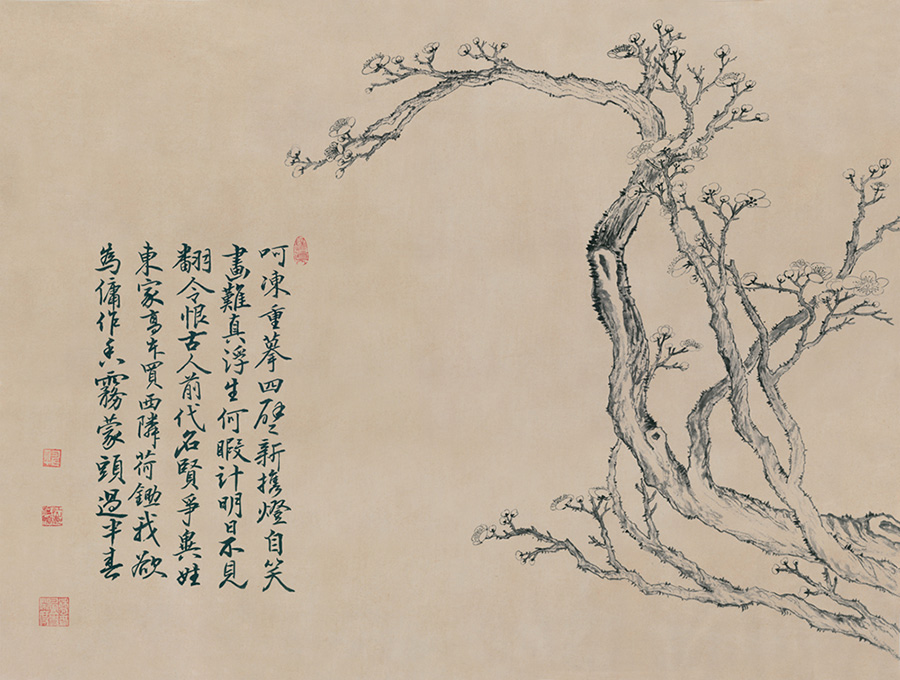 呵凍重摹四壁新攜燈自笑
畫難真浮生何暇計明日不見
翻令恨古人前代名賢爭與姓
東家喬木買西隣荷鋤我欲
為傭作香霧蒙頭過半春